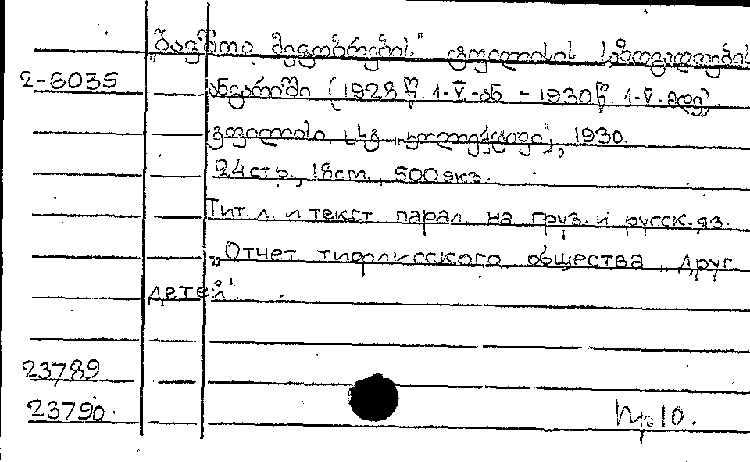 „ბავშთა მეგობრების" ტფილისის საზოგადოების
2-6035 ანგარიში (1928 წ. 1-V-ან - 1930 წ. 1-V-მდე)
ტფილისი, 1930.
24 стр., 18 см., 500 экз.
Тит. л. и текст парал. на груз. и русск. яз.
„Отчет тифлисского общества „Друг
детей"
23789
23790. 10.